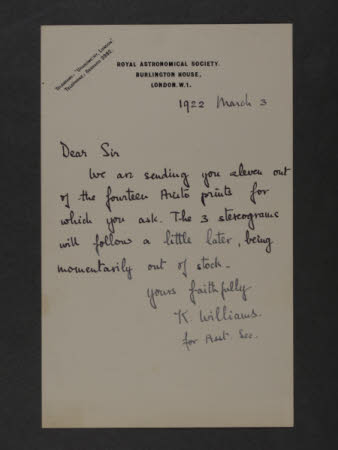 ROYAL ASTRONOMICAL SOCIETY.
BURLINGTON HOUSE,
LONDON. W.1.
1922 March 3
Dear Sir
We are sending you eleven out
of the fourteen prints for
which you ask. The 3 stereograms
will follow a little later, being
momentarily out of stock.
Yours faithfully
K. Williams.
for Asst. Sec.